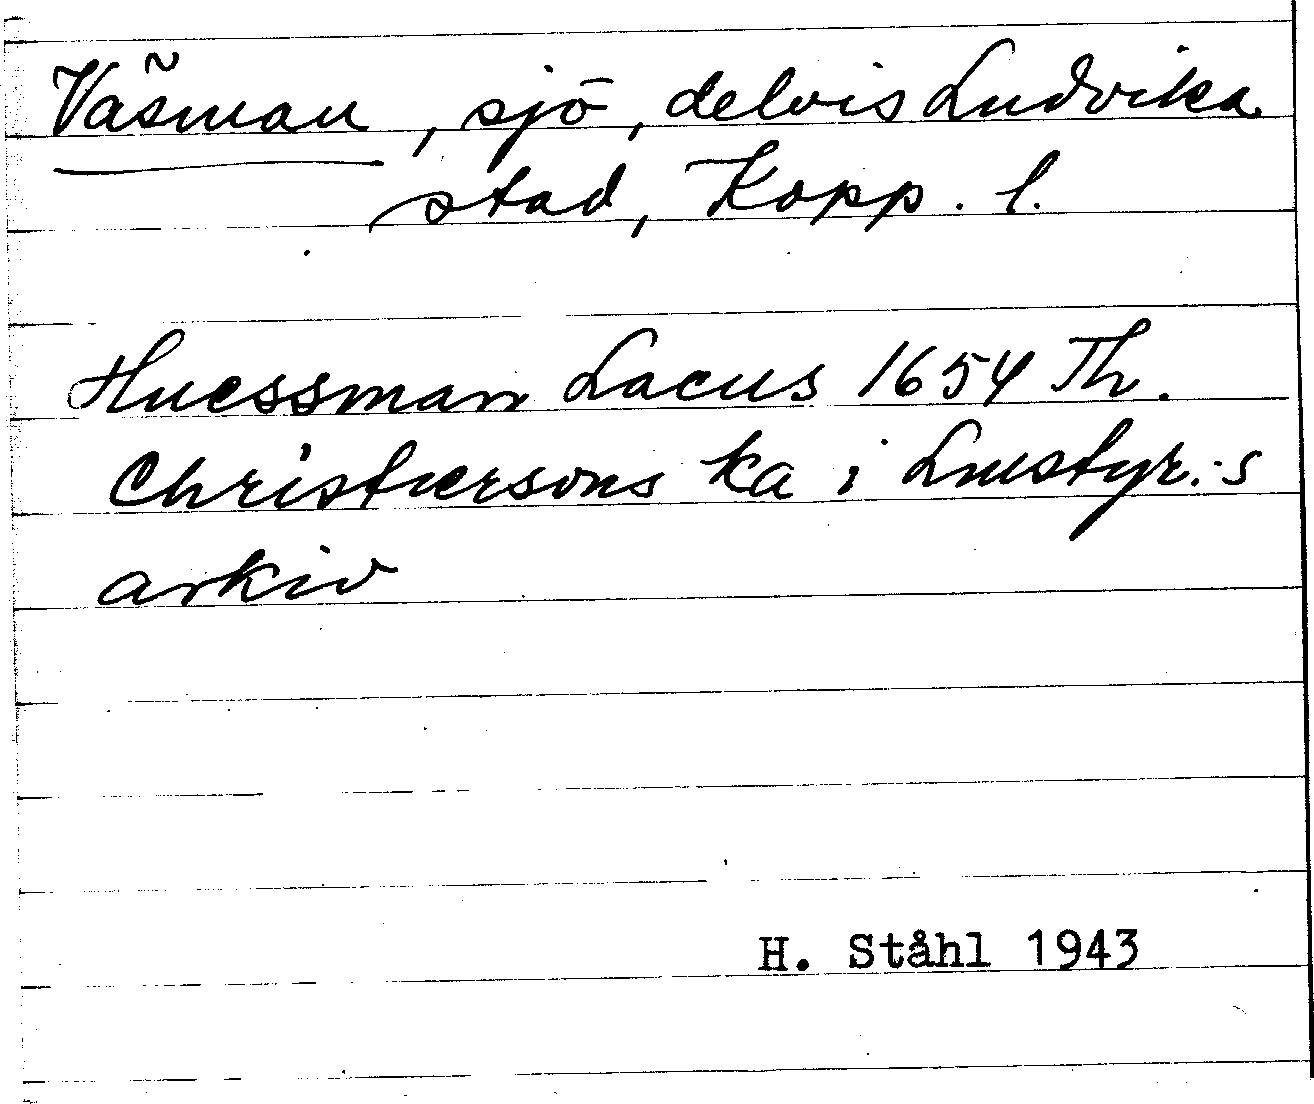 Väsman, sjö, delvis Ludvika
stad, Kopp. l.
Huessman Lacus 1654 Th.
Christiersons ka i Lmstyr.:s
arkiv
H. Ståhl 1943